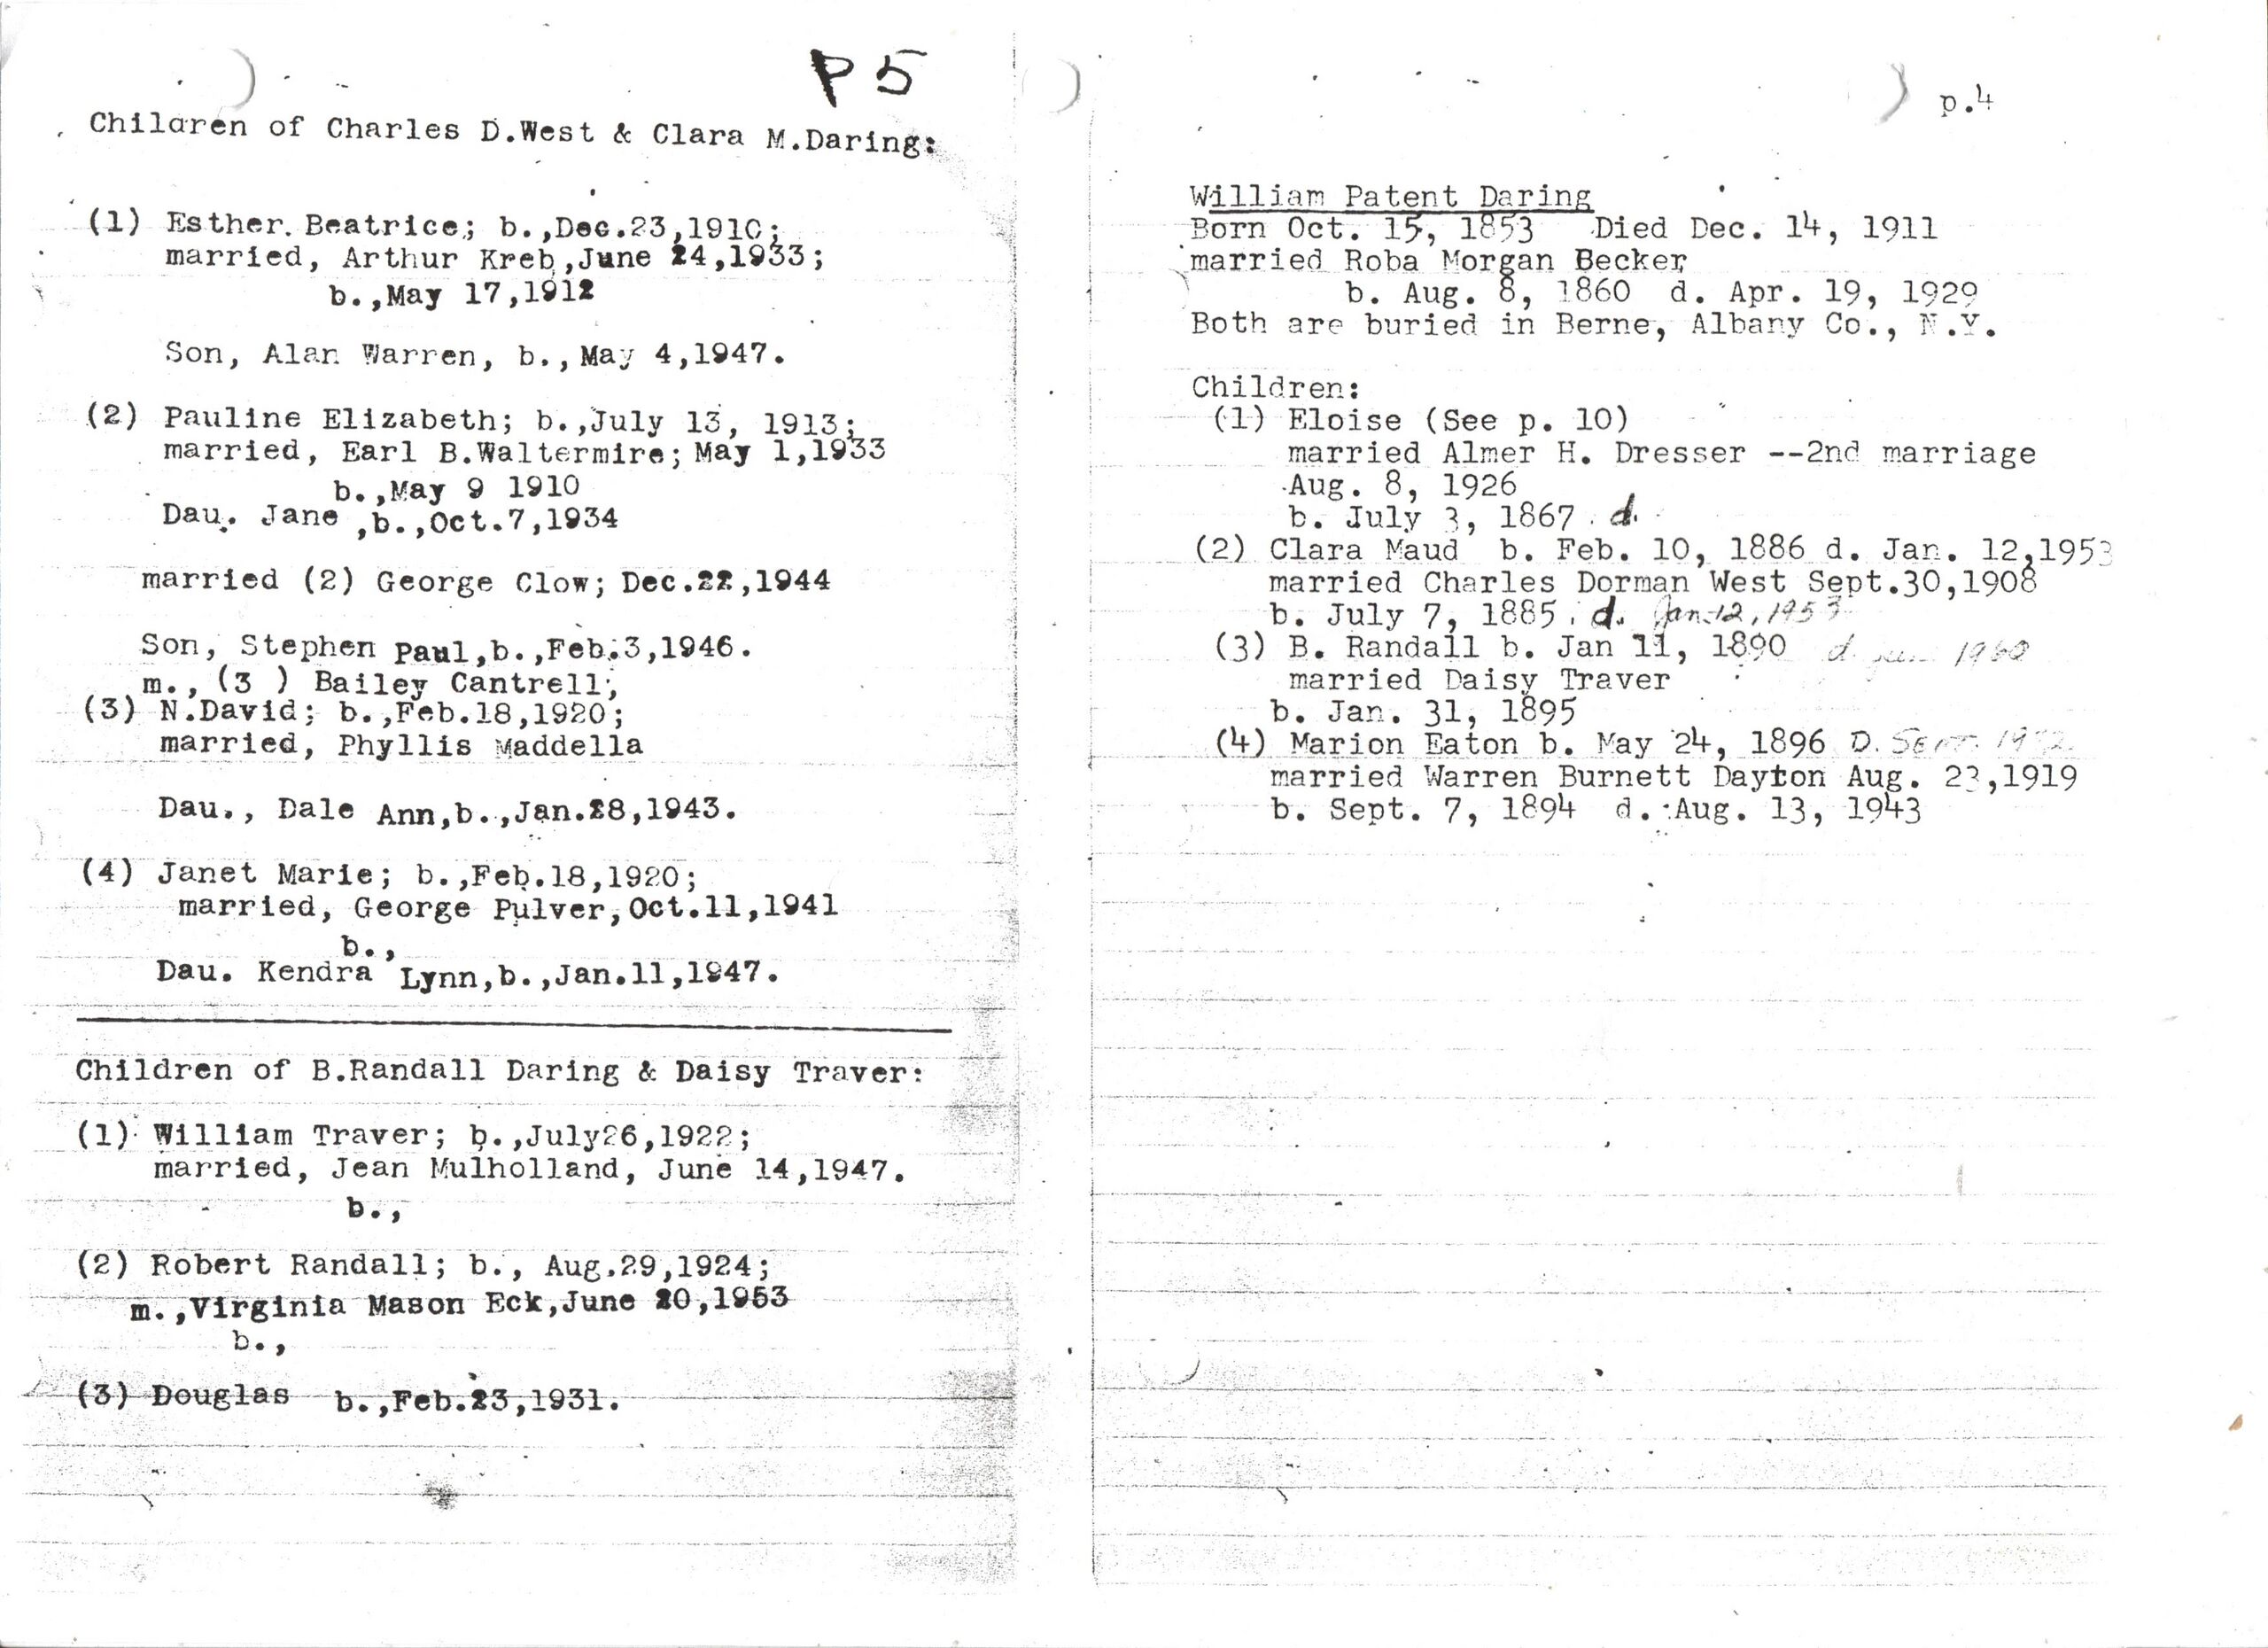 P 5
Children of Charles D.West & Clara M.Daring:
(1) Esther Beatrice; b.,Dec.23,1910;
married, Arthur Kreb,June 24,1933;
b.,May 17,1912
Son, Alan Warren, b.,May 4,1947.
(2) Pauline Elizabeth; b.,July 13, 1913;
married, Earl B.Waltermire; May 1,1933
b.,May 9 1910
Dau. Jane ,b.,Oct.7,1934
married (2) George Clow; Dec.22,1944
Son, Stephen Paul,b.,Feb.3,1946.
m.,(3 ) Bailey Cantrell;
(3) N.David; b.,Feb.18,1920;
married, Phyllis Maddella
Dau., Dale Ann,b.,Jan.28,1943.
(4) Janet Marie; b.,Feb.18,1920;
married, George Pulver,Oct.11,1941
b.,
Dau. Kendra Lynn,b.,Jan.11,1947.
Children of B.Randall Daring & Daisy Traver:
(1) William Traver; b.,July26,1922;
married, Jean Mulholland, June 14,1947.
b.,
(2) Robert Randall; b., Aug.29,1924;
m.,Virginia Mason Eck,June 20,1953
b.,
(3) Douglas b.,Feb.23,1931.
p.4
William Patent Daring
Born Oct. 15, 1853 Died Dec. 14, 1911
married Roba Morgan Becker
b. Aug. 8, 1860 d. Apr. 19, 1929
Both are buried in Berne, Albany Co., N.Y.
Children:
(1) Eloise (See p. 10)
married Almer H. Dresser --2nd marriage
Aug. 8, 1926
b. July 3, 1867 . d.
(2) Clara Maud b. Feb. 10, 1886 d. Jan. 12,1953
married Charles Dorman West Sept.30,1908
b. July 7, 1885 . d. Jan-12, 1953
(3) B. Randall b. Jan 11, 1890 d. 1960
married Daisy Traver
b. Jan. 31, 1895
(4) Marion Eaton b. May 24, 1896 D. Sept.
married Warren Burnett Dayton Aug. 23,1919
b. Sept. 7, 1894 d. Aug. 13, 1943